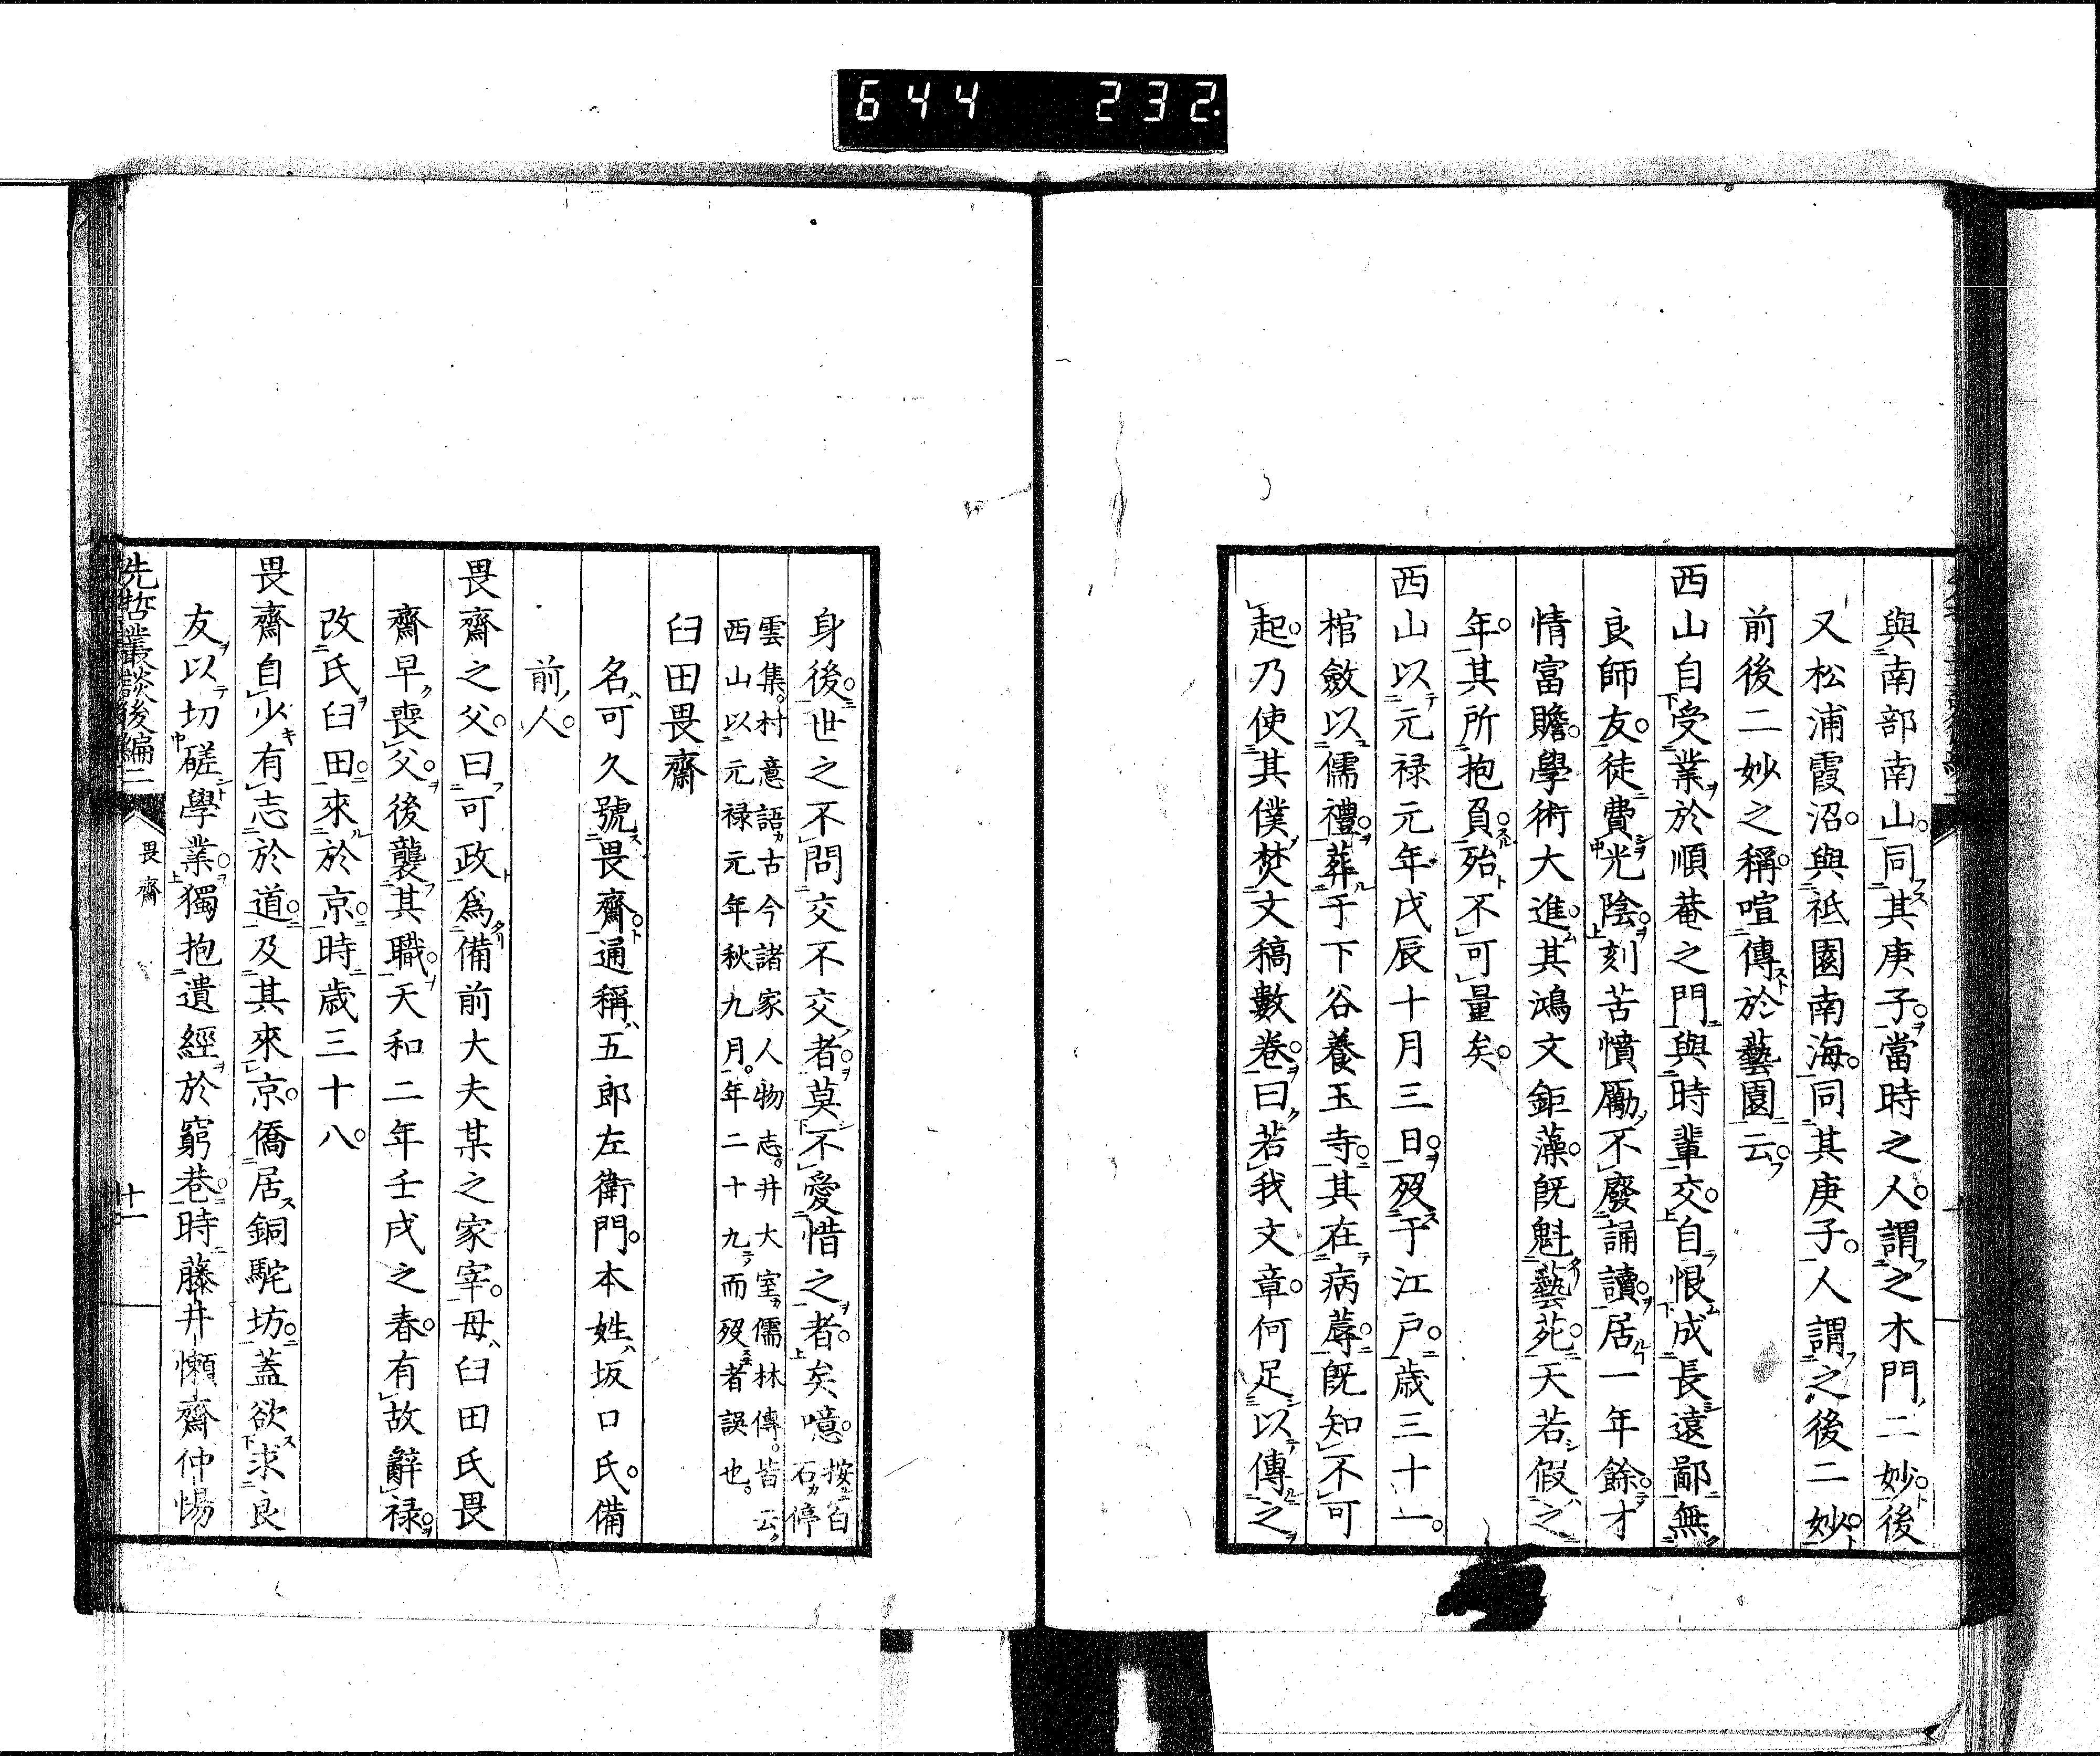 644 232
與南部南山。同其庚子。當時之人。謂之木門二妙。後
又松浦霞沼。與祗園南海。同其庚子。人謂之後二妙。
前後二妙之稱。喧傳於藝園云。
西山自受業於順菴之門。與時輩交。自恨成長遠鄙。無
良師友。徒費光陰。刻苦憤勵。不廢誦讀。居一年餘。才
情富贍。學術大進。其鴻文鉅藻。既魁藝苑。天若假之
年。其所抱負。殆不可量矣。
西山以元禄元年戊辰十月三日。歿于江戸。歳三十一。
棺斂以儒禮。葬于下谷養玉寺。其在病蓐。既知不可
起。乃使其僕焚文稿數卷。曰。若我文章。何足以傳之
身後。世之不問交不交者。莫不愛惜之者矣。噫。按白石停
雲集。村意語古今諸家人物志。井大室儒林傳。皆云
西山以元禄元年秋九月。年二十九而歿者誤也。
臼田畏齋
名可久。號畏齋。通稱五郎左衛門。本姓坂口氏。備
前人。
畏齋之父。曰可政。爲備前大夫某之家宰。母臼田氏。畏
齋早喪父。後襲其職。天和二年壬戌之春。有故辭禄。
改氏臼田。來於京。時歳三十八。
畏齋自少有志於道。及其來京。僑居銅駝坊。蓋欲求良
友以切磋學業。獨抱遺經於窮巷。時藤井懶齋仲惕
先哲叢談後編二
畏齋
十一